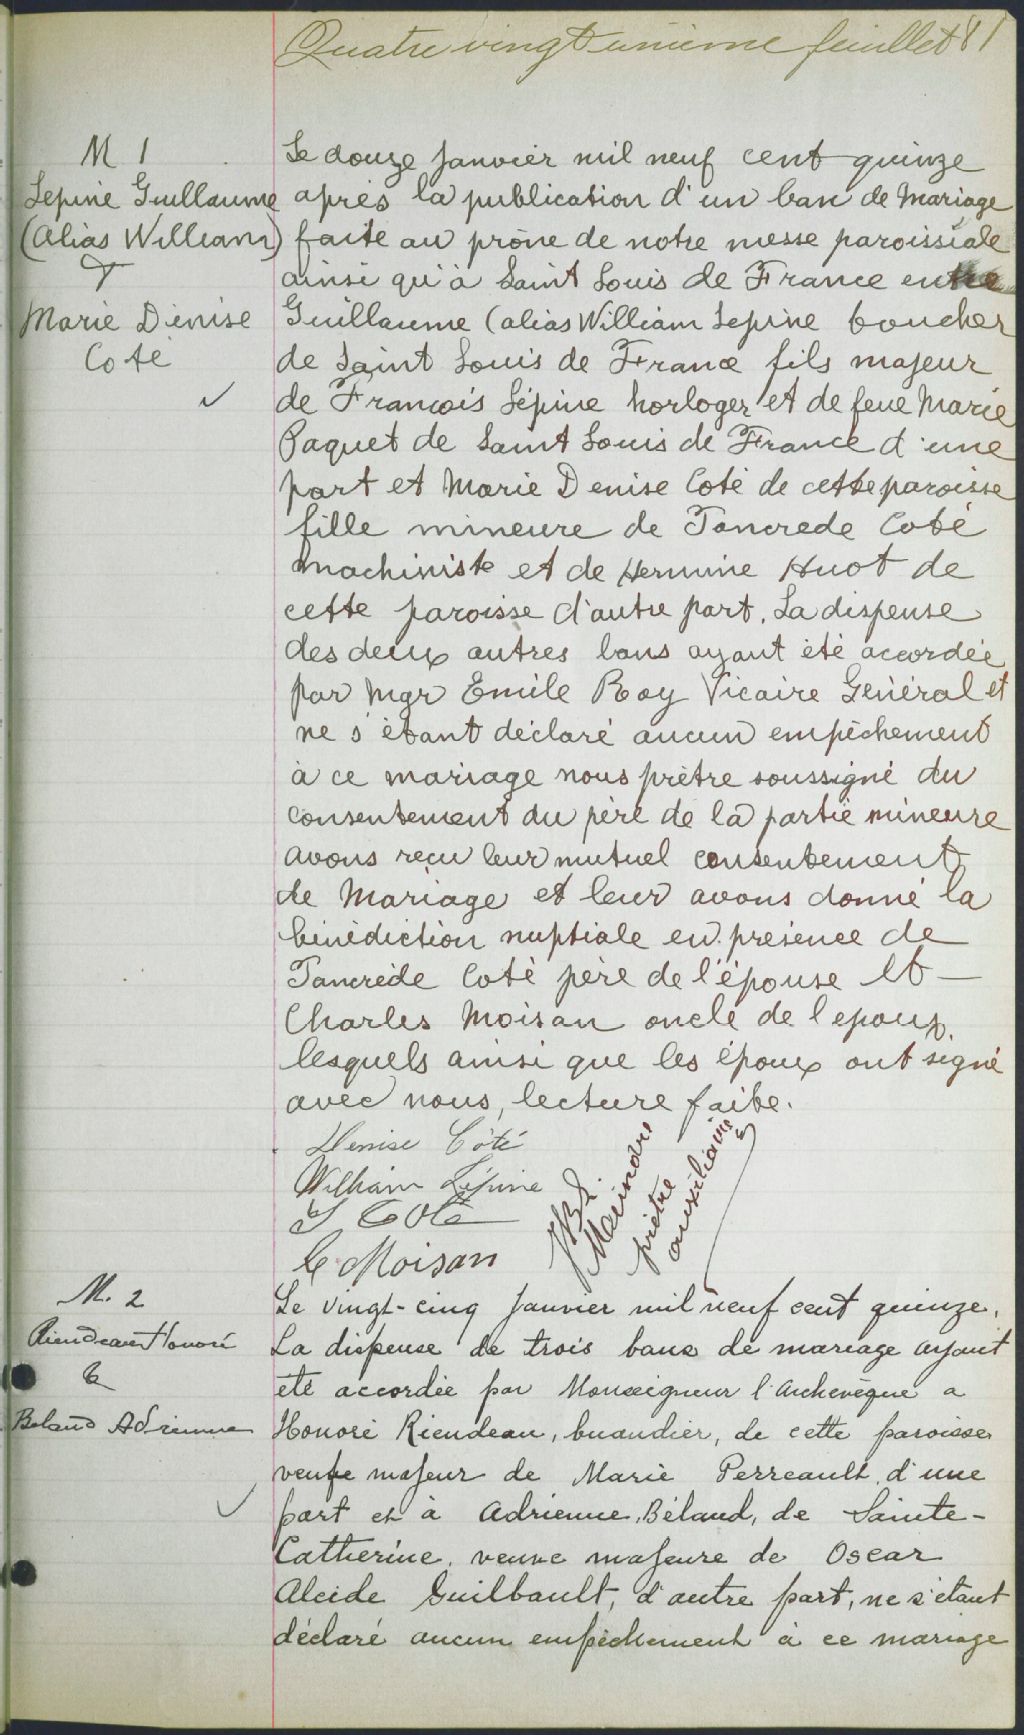 Quatre vingt unième feuillet 81
M 1
Lepine Guillaume
(alias William)
&
Marie Denise
Coté
Le douze janvier mil neuf cent quinze
après la publication d'un ban de Mariage
faite au prône de notre messe paroissiale
ainsi qu'à Saint Louis de France entre
Guillaume (alias William Lepine boucher
de Saint Louis de France fils majeur
de François Lépine horloger et de feue Marie
Paquet de Saint Louis de France d'une
part et Marie Denise Coté de cette paroisse
fille mineure de Tancrede Coté
machiniste et de Hermine Huot de
cette paroisse d'autre part. La dispense
des deux autres bans ayant été accordée
par Mgr Emile Roy Vicaire Général et
ne s'étant déclaré aucun empêchement
à ce mariage nous prêtre soussigné du
consentement du père de la partie mineure
avons reçu leur mutuel consentement
de Mariage et leur avons donné la
bénédiction nuptiale en presence de
Tancrède Coté père de l'épouse et
Charles Moisan oncle de l'epoux
lesquels ainsi que les époux ont signé
avec nous, lecture faite.
Denise Côté
William Lépine
T Coté
C Moisan
prêtre
auxiliaire
M. 2
Riendeau Honoré
&
Beland Adrienne
Le vingt-cinq janvier mil neuf cent quinze,
La dispense de trois bans de mariage ayant
été accordée par Monseigneur l'Archevêque a
Honoré Riendeau, buandier, de cette paroisse
veufe majeur de Marie Perreault d'une
part et à Adrienne Béland, de Sainte-
Catherine, veuve majeure de Oscar
Alcide Guilbault, d'autre part, ne s'étant
déclaré aucun empêchement à ce mariage